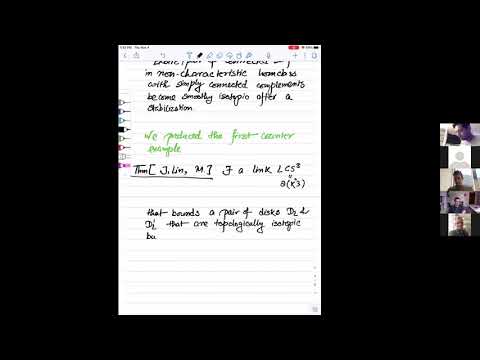 in non-characteristic homcloss
with simply connected complements
become smoothly isotopic after a
stabilization
We produced the first counter
example
Thm [J. Lin, M.] ∃ a link L ⊂ S³
∂(X°)
that bounds a pair of disks D₂ &
D₂' that are topologically isotopic
bu